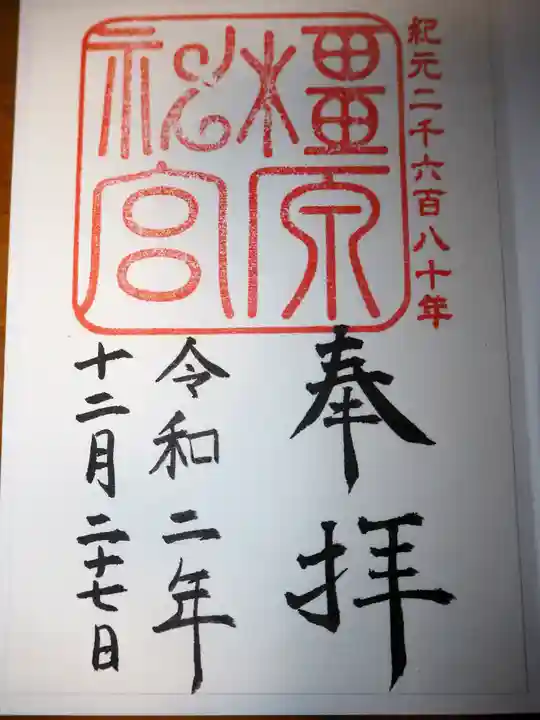 紀元二千六百八十年
橿原
神宮
奉拝
令和二年
十二月二十七日